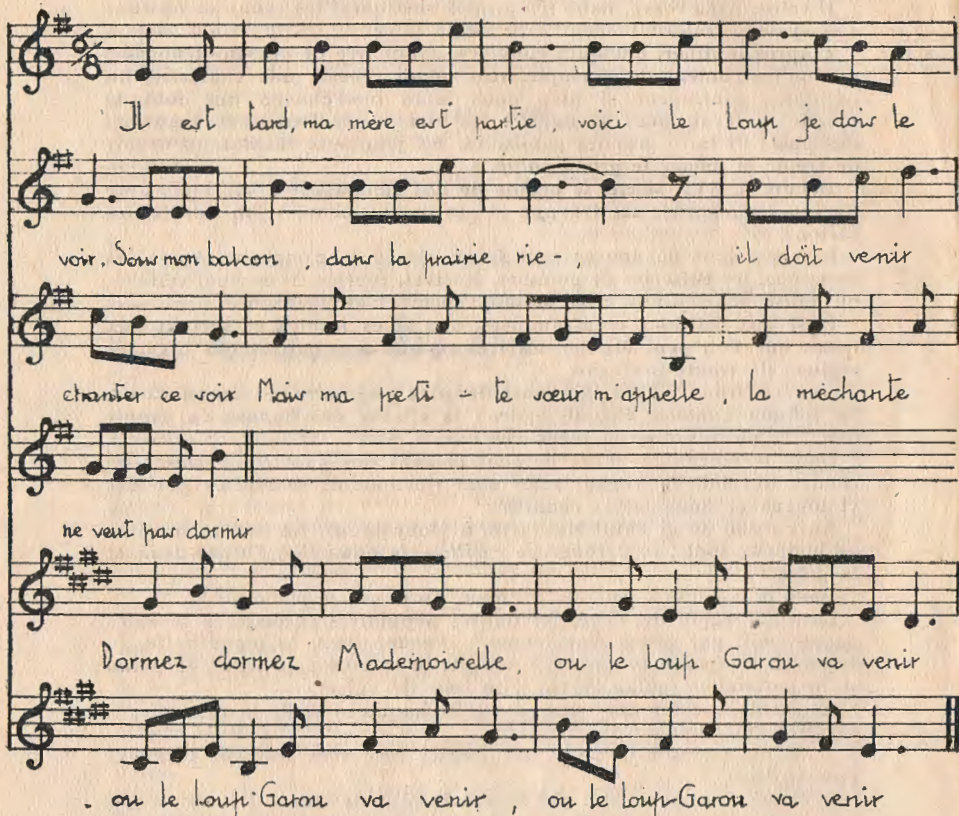 6/8
Il est tard, ma mère est partie, voici le loup je dois le
voir. Sous mon balcon, dans la prairie rie-, il doit venir
chanter ce soir Mais ma peti - te sœur m'appelle, la méchante
ne veut pas dormir
Dormez dormez Mademoiselle, ou le loup Garou va venir
. ou le loup Garou va venir, ou le loup-Garou va venir